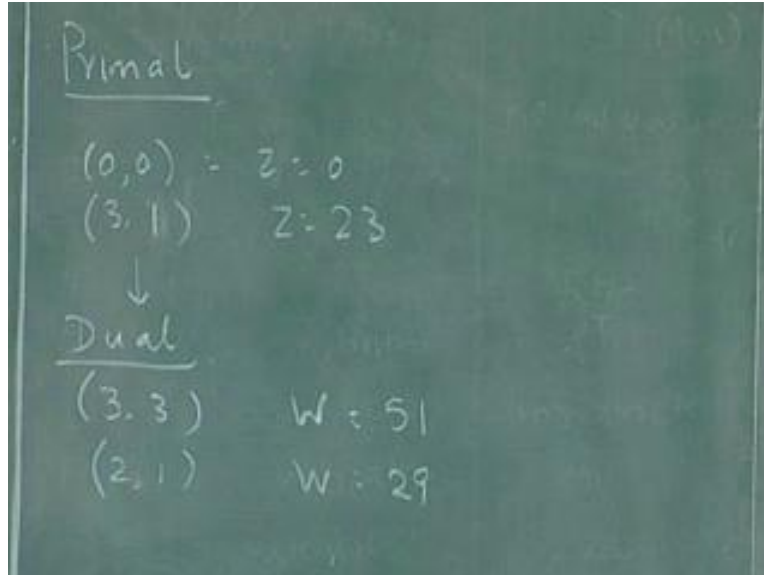 Primal
(0,0) = Z = 0
(3,1) Z = 23
↓
Dual
(3,3) W = 51
(2,1) W = 29